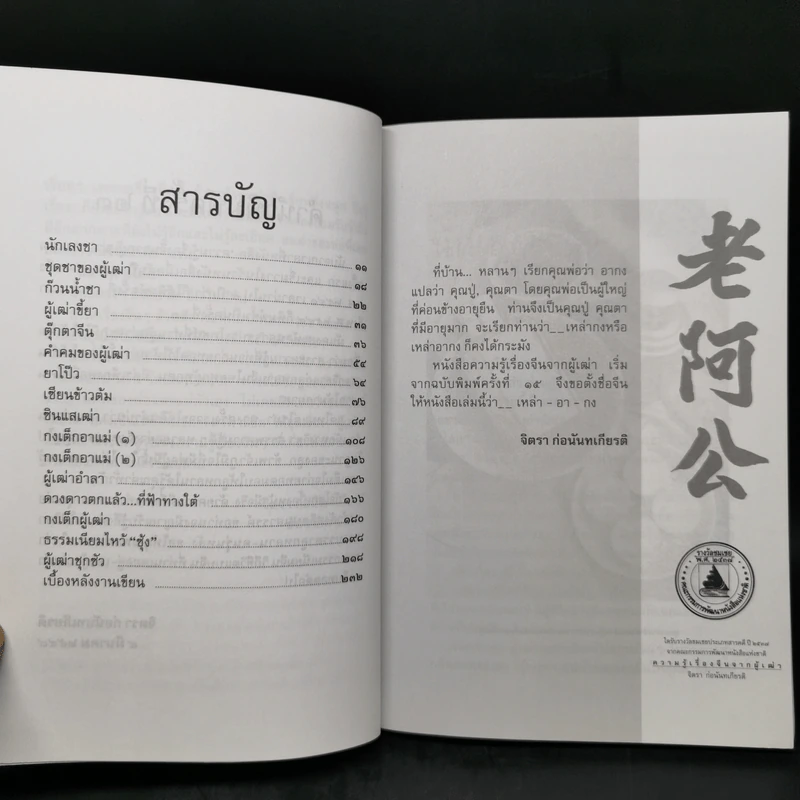 สารบัญ
นักเลงชา ๑๑
ชุดชาของผู้เฒ่า ๑๘
ก๊วนน้ำชา ๒๒
ผู้เฒ่าขี้ยา ๓๑
ตุ๊กตาจีน ๓๖
คำคมของผู้เฒ่า ๕๔
ยาโป๊ว ๖๔
เซียนข้าวต้ม ๗๖
ซินแสเฒ่า ๘๙
กงเต็กอาแม่ (๑) ๑๐๘
กงเต็กอาแม่ (๒) ๑๒๖
ผู้เฒ่าอำลา ๑๔๖
ดวงดาวตกแล้ว...ที่ฟ้าทางใต้ ๑๖๖
กงเต็กผู้เฒ่า ๑๘๐
ธรรมเนียมไหว้ “ชุ้ง” ๑๙๘
ผู้เฒ่าชุกชัว ๒๑๘
เบื้องหลังงานเขียน ๒๓๒
ที่บ้าน... หลานๆ เรียกคุณพ่อว่า อากง
แปลว่า คุณปู่, คุณตา โดยคุณพ่อเป็นผู้ใหญ่
ที่ค่อนข้างอายุยืน ท่านจึงเป็นคุณปู่ คุณตา
ที่มีอายุมาก จะเรียกท่านว่า__เหล่ากงหรือ
เหล่าอากง ก็คงได้กระมัง
หนังสือความรู้เรื่องจีนจากผู้เฒ่า เริ่ม
จากฉบับพิมพ์ครั้งที่ ๑๕ จึงขอตั้งชื่อจีน
ให้หนังสือเล่มนี้ว่า__ เหล่า - อา - กง
จิตรา ก่อนันทเกียรติ
老阿公
รางวัลชมเชย
พ.ศ. ๒๕๓๗
คณะกรรมการพัฒนาหนังสือแห่งชาติ
ได้รับรางวัลชมเชยประเภทสารคดี ปี ๒๕๓๗
จากคณะกรรมการพัฒนาหนังสือแห่งชาติ
ความรู้เรื่องจีนจากผู้เฒ่า
จิตรา ก่อนันทเกียรติ